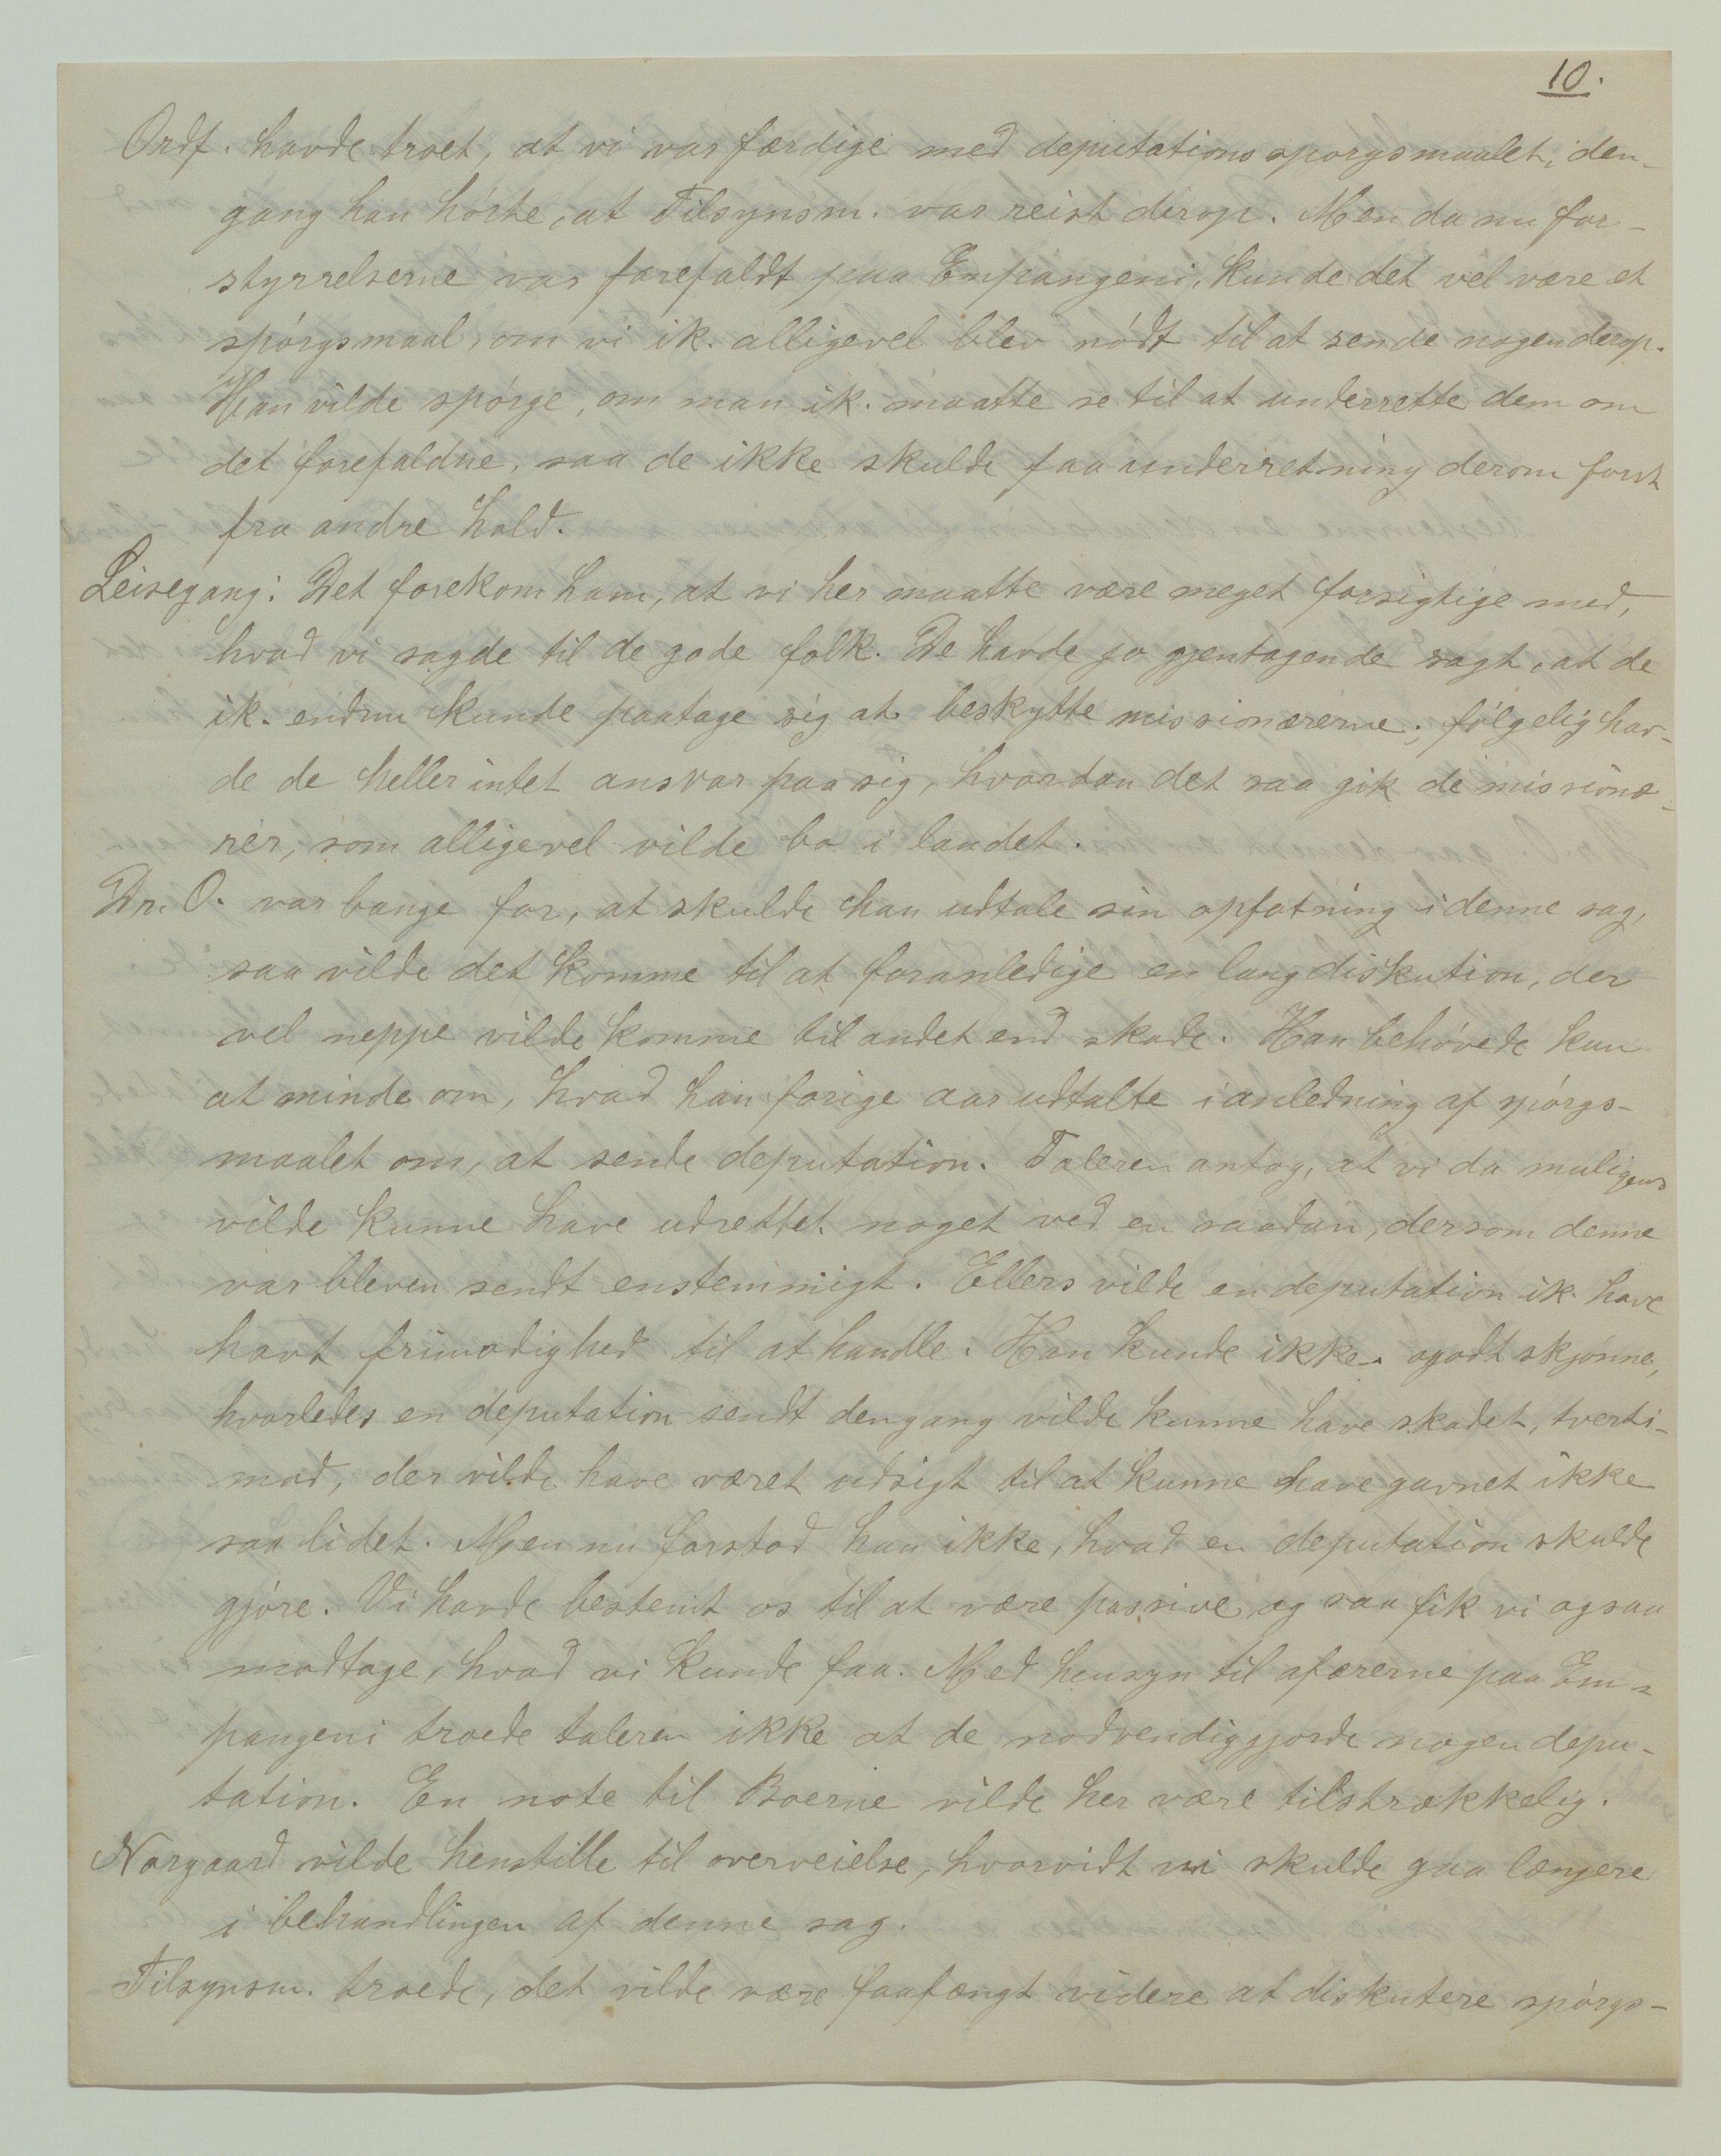 10.
Ordf. havde troet, at vi var færdige med deputationsspørgsmaalet, den-
gang han hórte, at Tilsynsm. var reist derop. Men da nu for-
styrrelserne var forefaldt paa Empangeni, kunde det vel være et
spórgsmaal, om vi ik. alligevel blev nódt til at sende nogen derop.
Han vilde spórge, om man ik. maatte se til at underrette dem om
det forefaldne, saa de ikke skulde faa underretning derom forst
fra andre hold.
Leisegang: Det forekom ham, at vi her maatte være meget forsigtige med,
hvad vi sagde til de gode folk. De havde jo gjentagende sagt, at de
ik. endnu kunde paatage sig at beskytte missionærerne; fólgelig hav-
de de heller intet ansvar paa sig, hvordan det saa gik de missionæ-
rer, som alligevel vilde bo i landet.
Dr. O. var bange for, at skulde han udtale sin opfatning i denne sag,
saa vilde det komme til at foranledige en lang diskution, der
vel neppe vilde komme til andet end skade. Han behóvede kun
at minde om, hvad han forige aar udtalte i anledning af spórgs-
maalet om, at sende deputation. Taleren antog, at vi da muligens
vilde kunne have udrettet noget ved en saadan, dersom denne
var bleven sendt enstemmigt. Ellers vilde en deputation ik. have
havt frimodighed til at handle. Han kunde ikke. ogodt skjónne,
hvorledes en deputation sendt dengang vilde kunne have skadet, tverti-
mod, der vilde have været udsigt til at kunne have gavnet ikke
saa lidet. Men nu forstod han ikke, hvad en deputation skulde
gjóre. Vi havde bestemt os til at være passive og saa fik vi ogsaa
modtage, hvad vi kunde faa. Med hensyn til afærerne paa Em-
pangeni troede taleren ikke at de nodvendiggjorde nogen depu-
tation. En note til Boerne vilde her være tilstrækkelig.
Norgaard vilde henstille til overveielse, hvorvidt vi skulde gaa længere
i behandlingen af denne sag.
Tilsynsm. troede, det vilde være faafængt videre at diskutere spórgs-